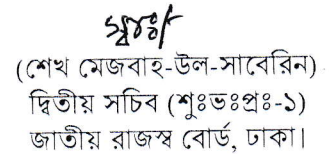 স্বাঃ/-
(শেখ মেজবাহ-উল-সাবেরিন)
দ্বিতীয় সচিব (শুঃভঃপ্রঃ-১)
জাতীয় রাজস্ব বোর্ড, ঢাকা।